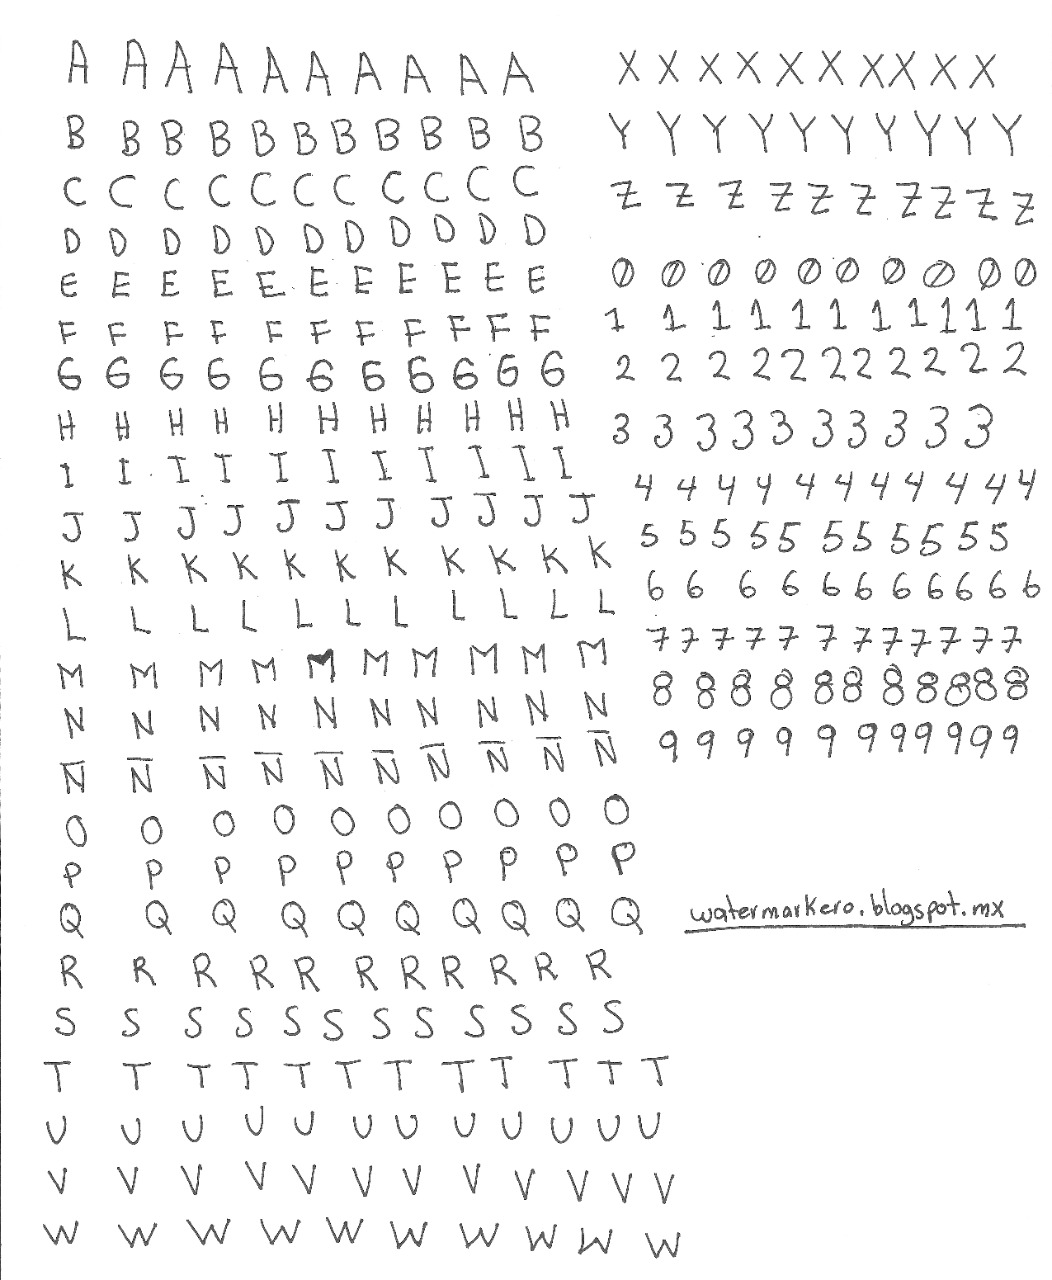 A A A A A A A A A A
B B B B B B B B B B B
C C C C C C C C C C C
D D D D D D D D D D D
E E E E E E E E E E E
F F F F F F F F F F F
G G G G G G G G G G G
H H H H H H H H H H H
I I I I I I I I I I I
J J J J J J J J J J J
K K K K K K K K K K K
L L L L L L L L L L L
M M M M M M M M M M
N N N N N N N N N N
Ñ Ñ Ñ Ñ Ñ Ñ Ñ Ñ Ñ Ñ
O O O O O O O O O O
P P P P P P P P P P
Q Q Q Q Q Q Q Q Q Q
R R R R R R R R R R R
S S S S S S S S S S S S
T T T T T T T T T T T T
U U U U U U U U U U U U
V V V V V V V V V V V V
W W W W W W W W W W
X X X X X X X X X X
Y Y Y Y Y Y Y Y Y Y
Z Z Z Z Z Z Z Z Z Z
0 0 0 0 0 0 0 0 0 0
1 1 1 1 1 1 1 1 1 1 1
2 2 2 2 2 2 2 2 2 2 2
3 3 3 3 3 3 3 3 3 3
4 4 4 4 4 4 4 4 4 4 4
5 5 5 5 5 5 5 5 5 5 5
6 6 6 6 6 6 6 6 6 6 6
7 7 7 7 7 7 7 7 7 7 7 7
8 8 8 8 8 8 8 8 8 8 8
9 9 9 9 9 9 9 9 9 9 9
watermarkero.blogspot.mx